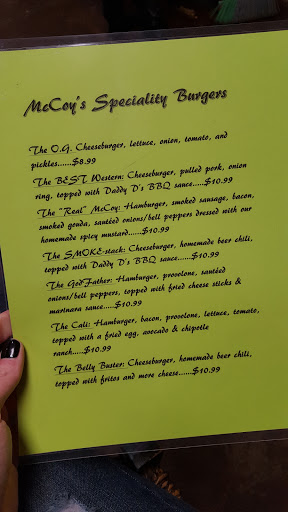 McCoy's Speciality Burgers
The O.G. Cheeseburger, lettuce, onion, tomato, and
pickles......$8.99
The BEST Western: Cheeseburger, pulled pork, onion
ring, topped with Daddy D's BBQ sauce.....$10.99
The "Real" McCoy: Hamburger, smoked sausage, bacon,
smoked gouda, sautéed onions/bell peppers dressed with our
homemade spicy mustard.....$10.99
The SMOKE-stack: Cheeseburger, homemade beer chili,
topped with Daddy D's BBQ sauce.....$10.99
The GodFather: Hamburger, provolone, sautéed
onions/bell peppers, topped with fried cheese sticks &
marinara sauce.....$10.99
The Cali: Hamburger, bacon, provolone, lettuce, tomato,
topped with a fried egg, avocado & chipotle
ranch.....$10.99
The Belly Buster: Cheeseburger, homemade beer chili,
topped with fritos and more cheese......$10.99